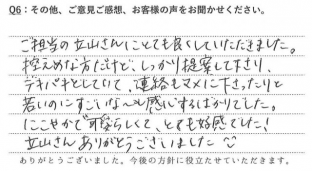 Q6：その他、ご意見ご感想、お客様の声をお聞かせください。
ご担当の立山さんにとても良くしていただきました。
控えめな方だけど、しっかり提案して下さり、
デキパキとしていて、連絡もマメに下さったりと
若いのにすごいな〜と感心するばかりでした。
にこやかで可愛らしくて、とても好感でした！
立山さんありがとうございました
ありがとうございました。今後の方針に役立たせていただきます。